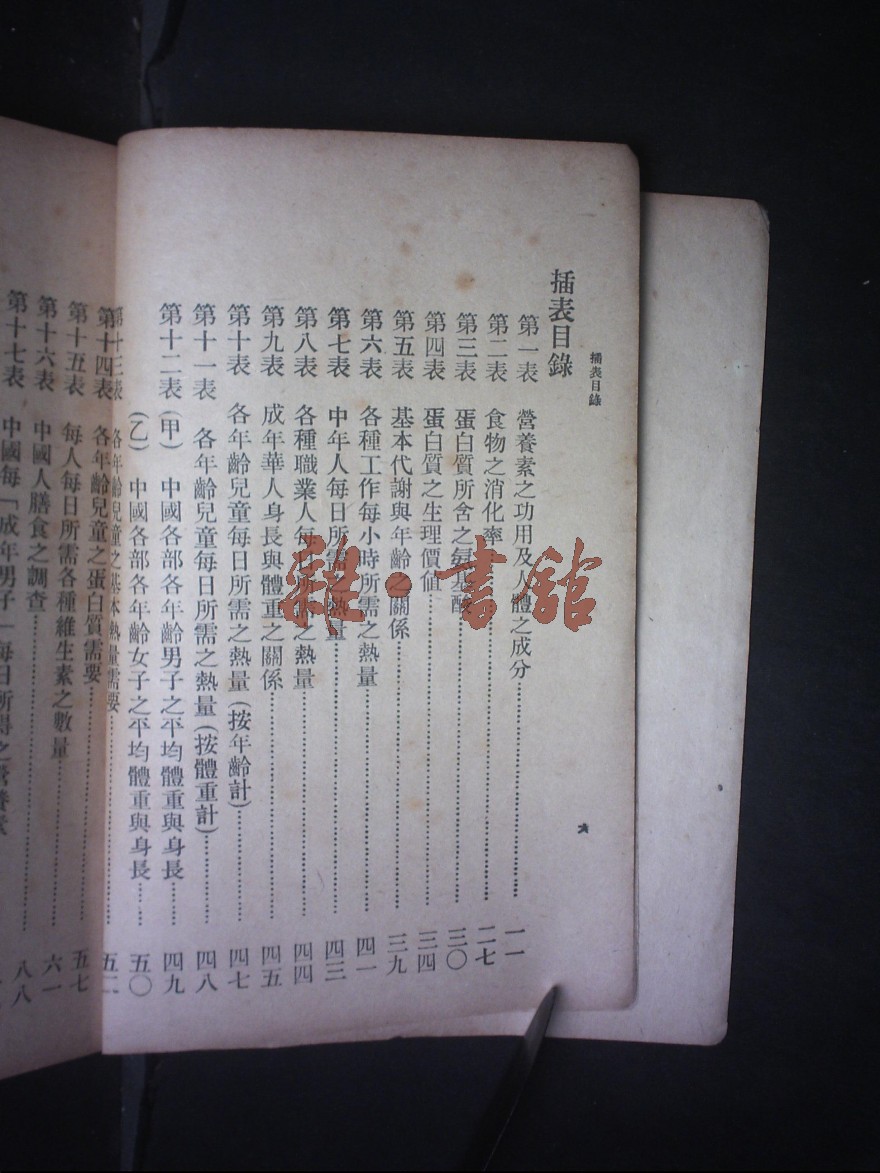 插表目錄
插表目錄
第一表 營養素之功用及人體之成分…………一一
第二表 食物之消化率…………二七
第三表 蛋白質所含之氨基酸…………三〇
第四表 蛋白質之生理價值…………三四
第五表 基本代謝與年齡之關係…………三九
第六表 各種工作每小時所需之熱量…………四一
第七表 中年人每日所需之熱量…………四三
第八表 各種職業人每日所需之熱量…………四四
第九表 成年華人身長與體重之關係…………四五
第十表 各年齡兒童每日所需之熱量(按年齡計)…………四七
第十一表 各年齡兒童每日所需之熱量(按體重計)…………四八
第十二表 (甲) 中國各部各年齡男子之平均體重與身長……四九
(乙) 中國各部各年齡女子之平均體重與身長……五〇
第十三表 各年齡兒童之基本熱量需要…………五二
第十四表 各年齡兒童之蛋白質需要…………五七
第十五表 每人每日所需各種維生素之數量…………六一
第十六表 中國人膳食之調查…………八八
第十七表 中國每「成年男子」每日所得之營養素
雜·書館